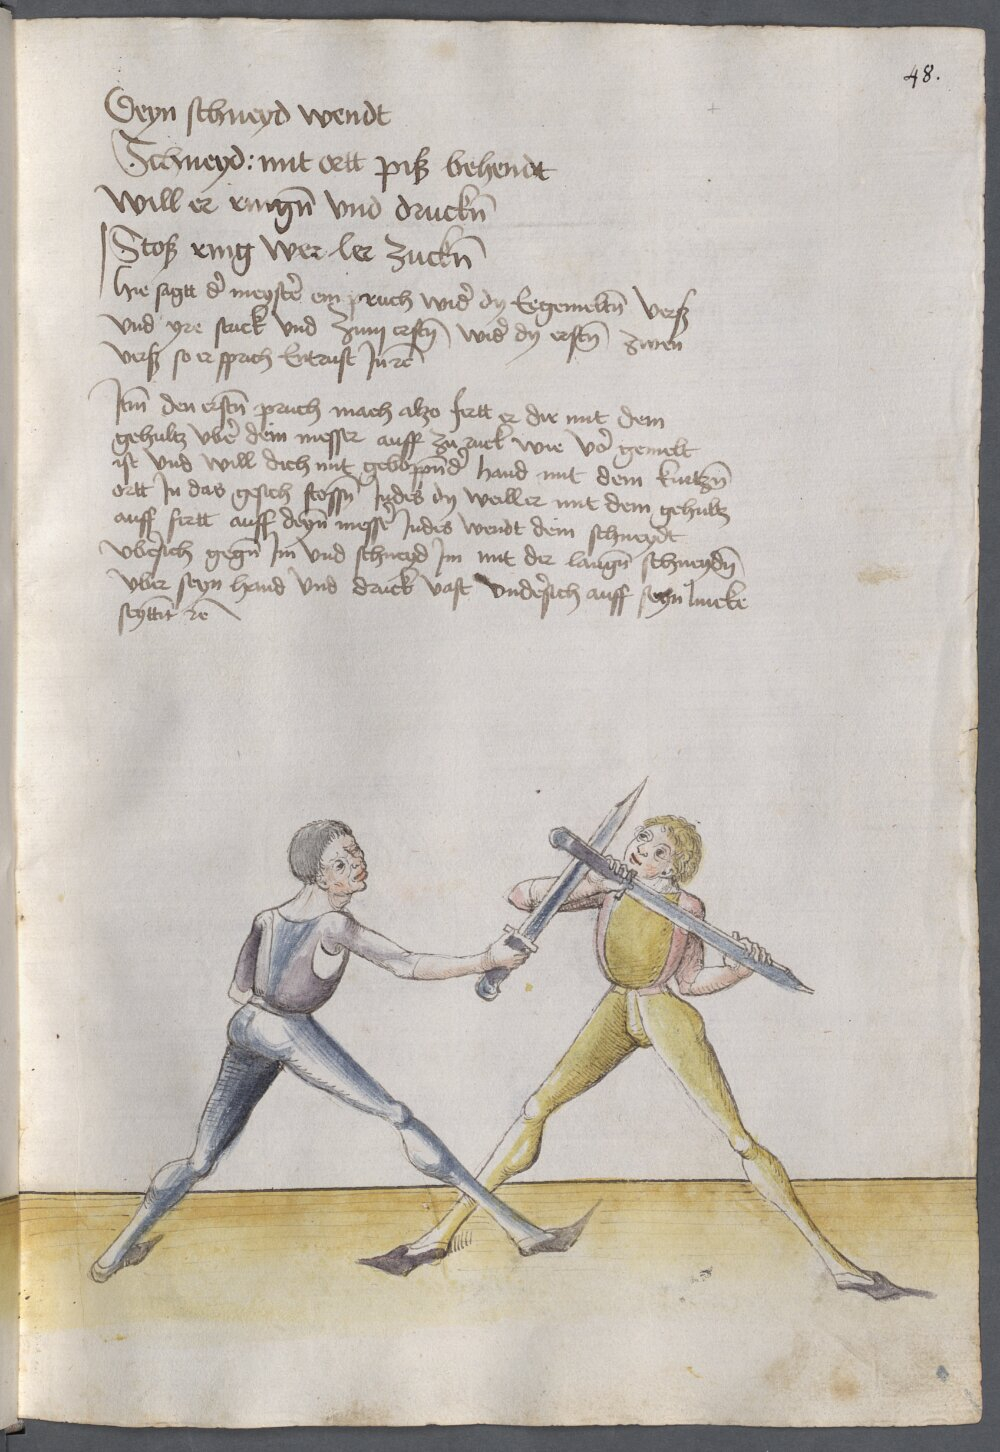 48.
Deyn schneyd wendt
Schneyd: mit ortt piß behendt
Will er ringn̄ vnd druckn̄
Stoß ring wer ler zuckn̄
Hie sagtt d' meyst' ein pruch wid' dy
verß
vnd yre stuck vnd zum erstn̄ wid' dy erstn̄ zwen
verß so er sprich Entrust In rē
Itm̄ den erstn̄ pruch mach alzo fertt er dir mit dem
gehultz vbe' dein messer auff zu ruck wie vo' gemelt
ist vnd will dich mit gebopend' hand mit dem kurtzn̄
ortt In das gesich stossn̄ Indes dy weill er mit dem gehultz
auff fertt auff deyn messe' Indes wendt dein schneydt
vbersich gegn̄ Im vnd schneyd Im mit der langn̄ schneydn̄
vber seyn hand vnd druck vast vnde'sich auff seyn lincke
seyttn̄ rē